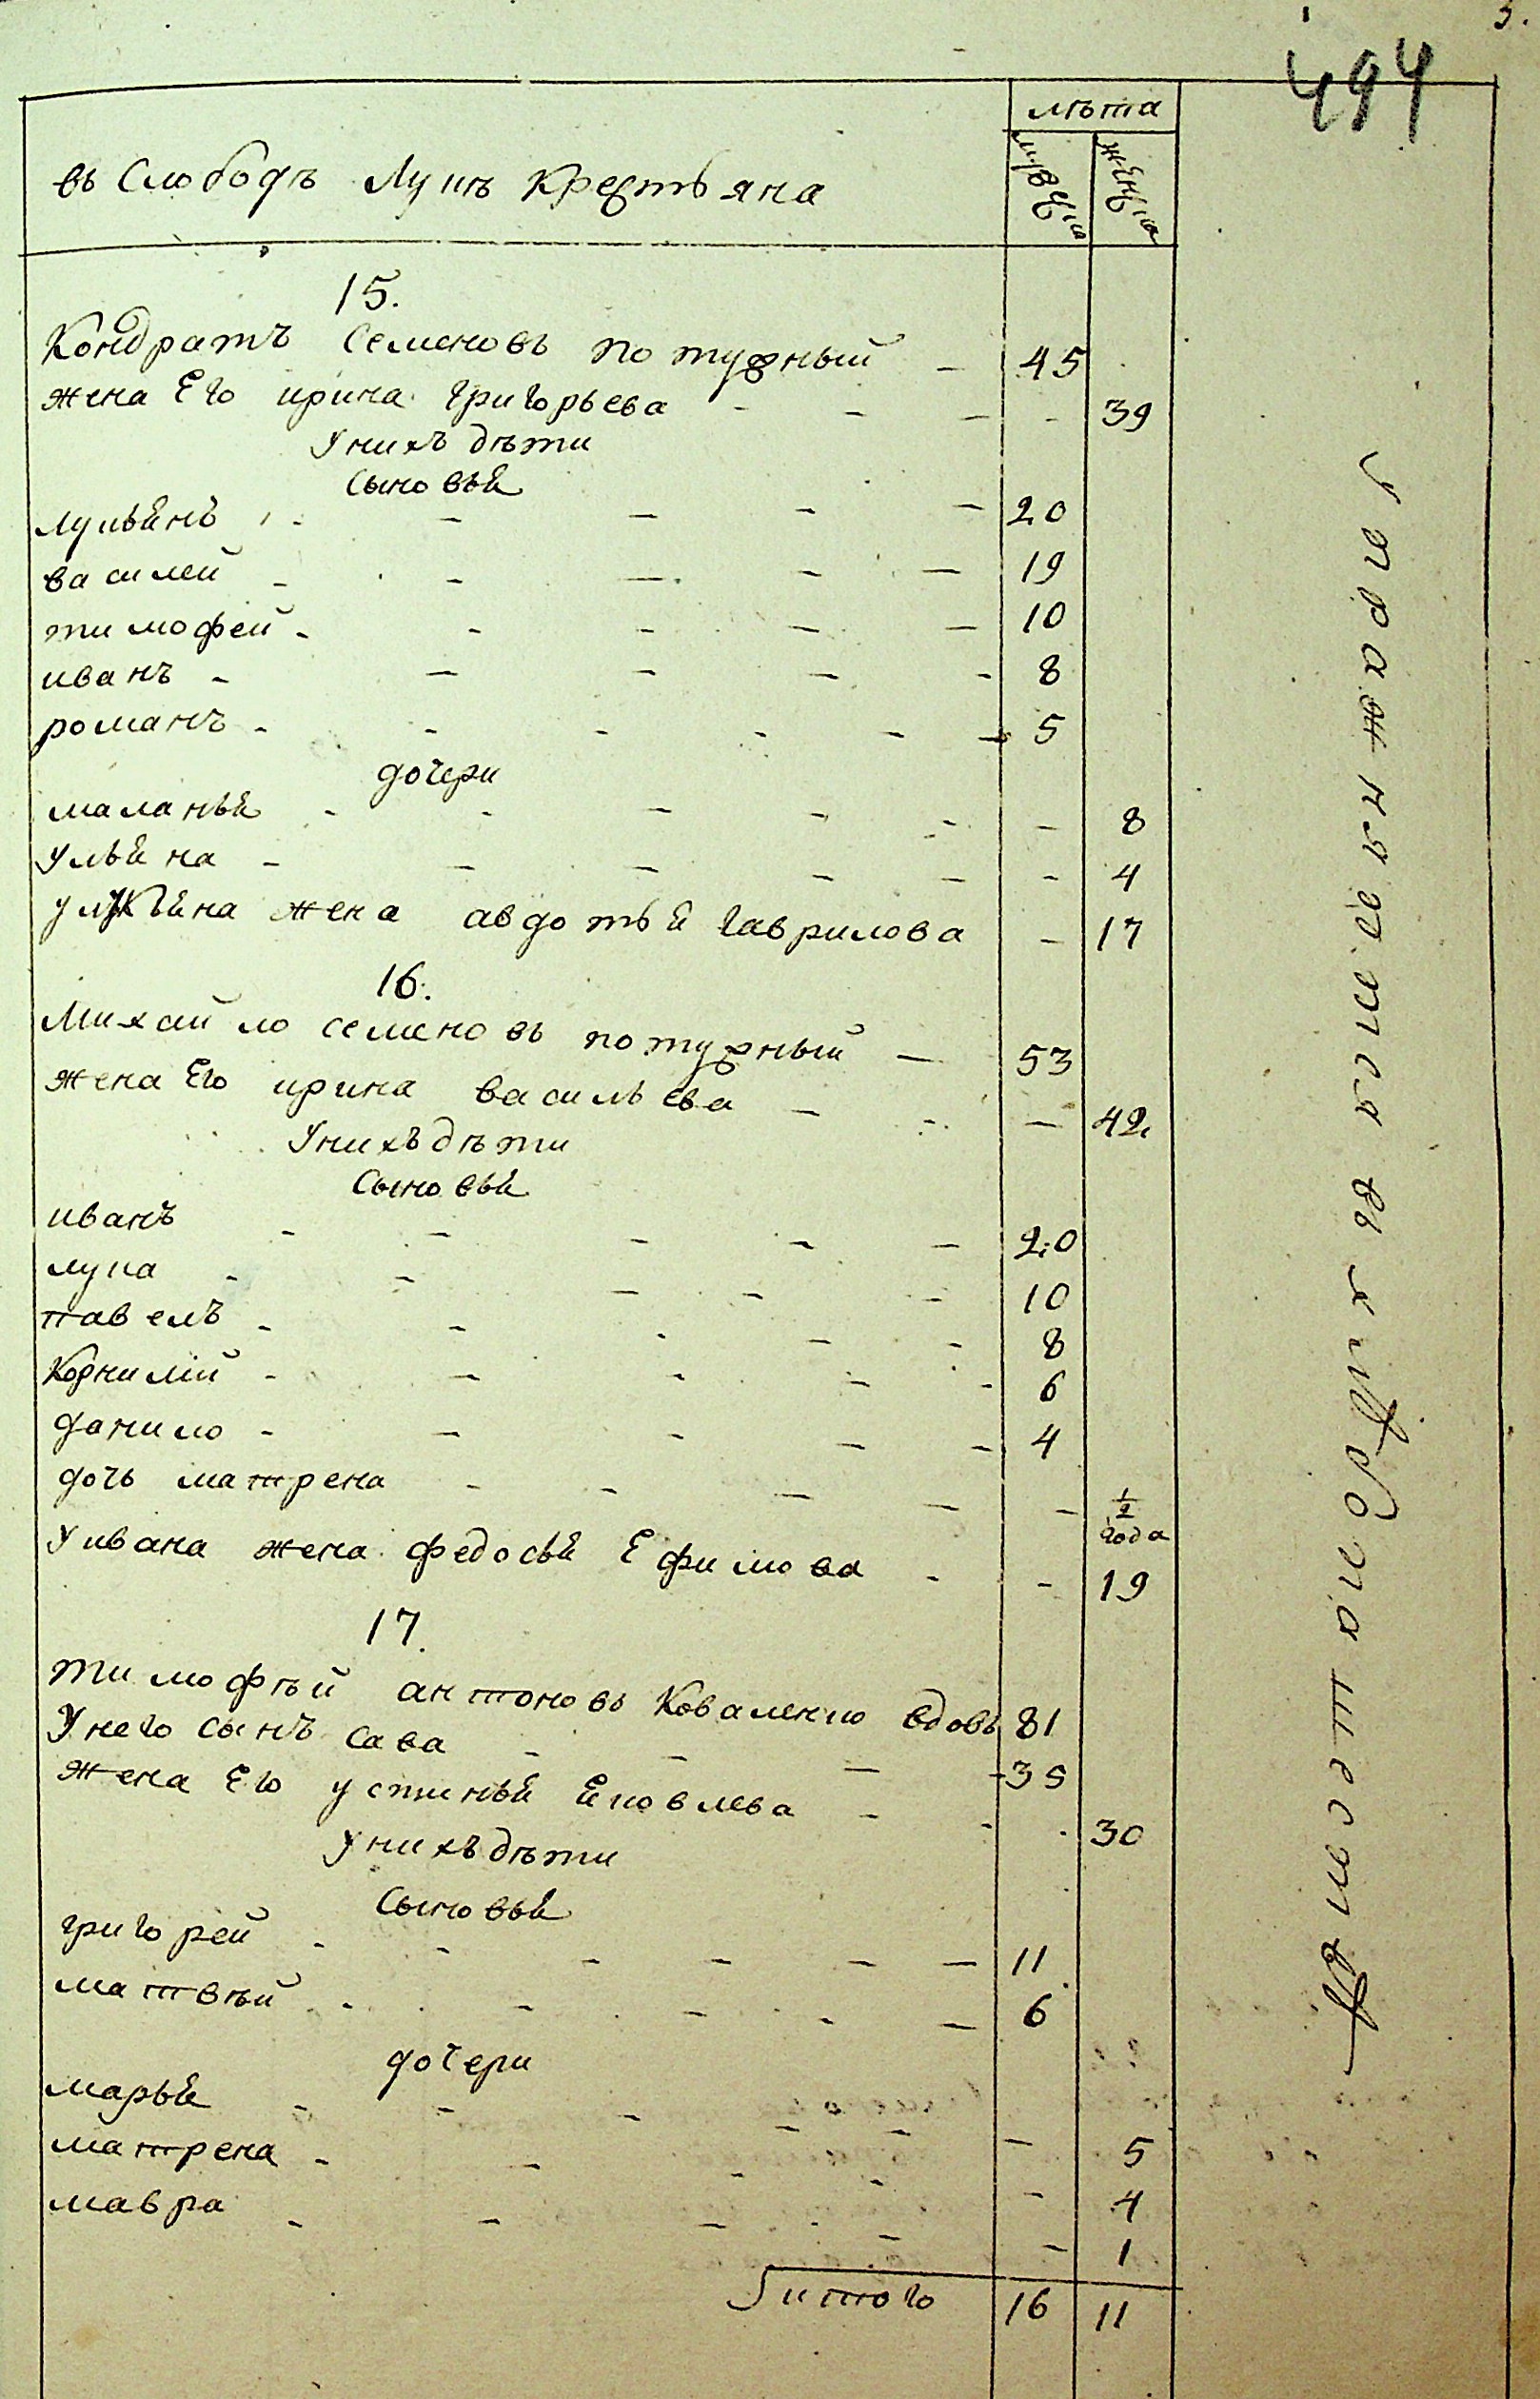 3.
494
въ Слободѣ Лукѣ Крестьяна
лѣта
мужеска
женска
15.
Кондратъ Семеновъ потурный - 45
жена Его ирина григорьева - - - - 39
У нихъ дѣти
Сыновья
лукьянъ - - - - - 20
василей - - - - - 19
тимофей - - - - - 10
иванъ - - - - - 8
романъ - - - - - - 5
дочери
маланья - - - - - - 8
Ульяна - - - - - - 4
у лукьяна жена авдотья гаврилова - 17
16.
Михайло семеновъ потурный - 53
жена Его ирина васильева - - - 42
У нихъ дѣти
Сыновья
иванъ - - - - - 20
лука - - - - - 10
павелъ - - - - - 8
Корнилій - - - - - 6
данило - - - - - 4
дочь матрена - - - - - 1/2 года
У ивана жена федосья Ефимова - - 19
17.
тимофѣй антоновъ Коваленко вдовъ 81
У него сынъ Сава - - - - 35
жена Его устинья Яковлева - - - 30
У нихъ дѣти
Сыновья
григорей - - - - - - 11
матвѣй - - - - - - 6
дочери
марья - - - - - - 5
матрена - - - - - 4
мавра - - - - - - 1
итого 16 11